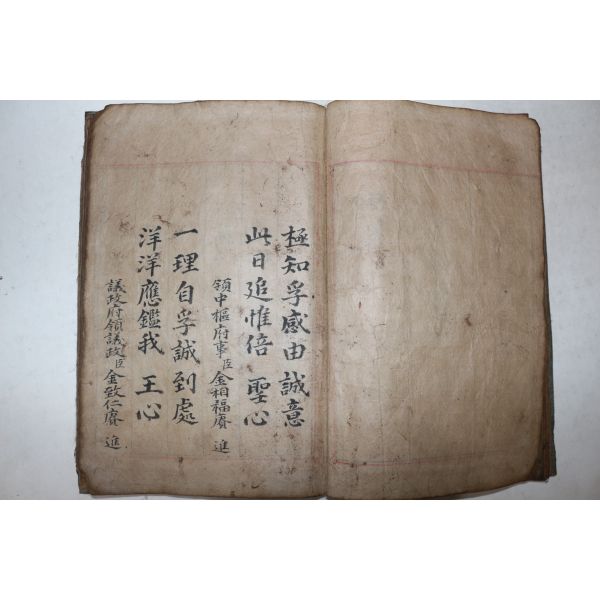 極知孚感由誠意
此日追惟倍 聖心
領中樞府事臣金相福賡 進
一理自孚誠到處
洋洋應鑑我 王心
議政府領議政臣金致仁賡 進